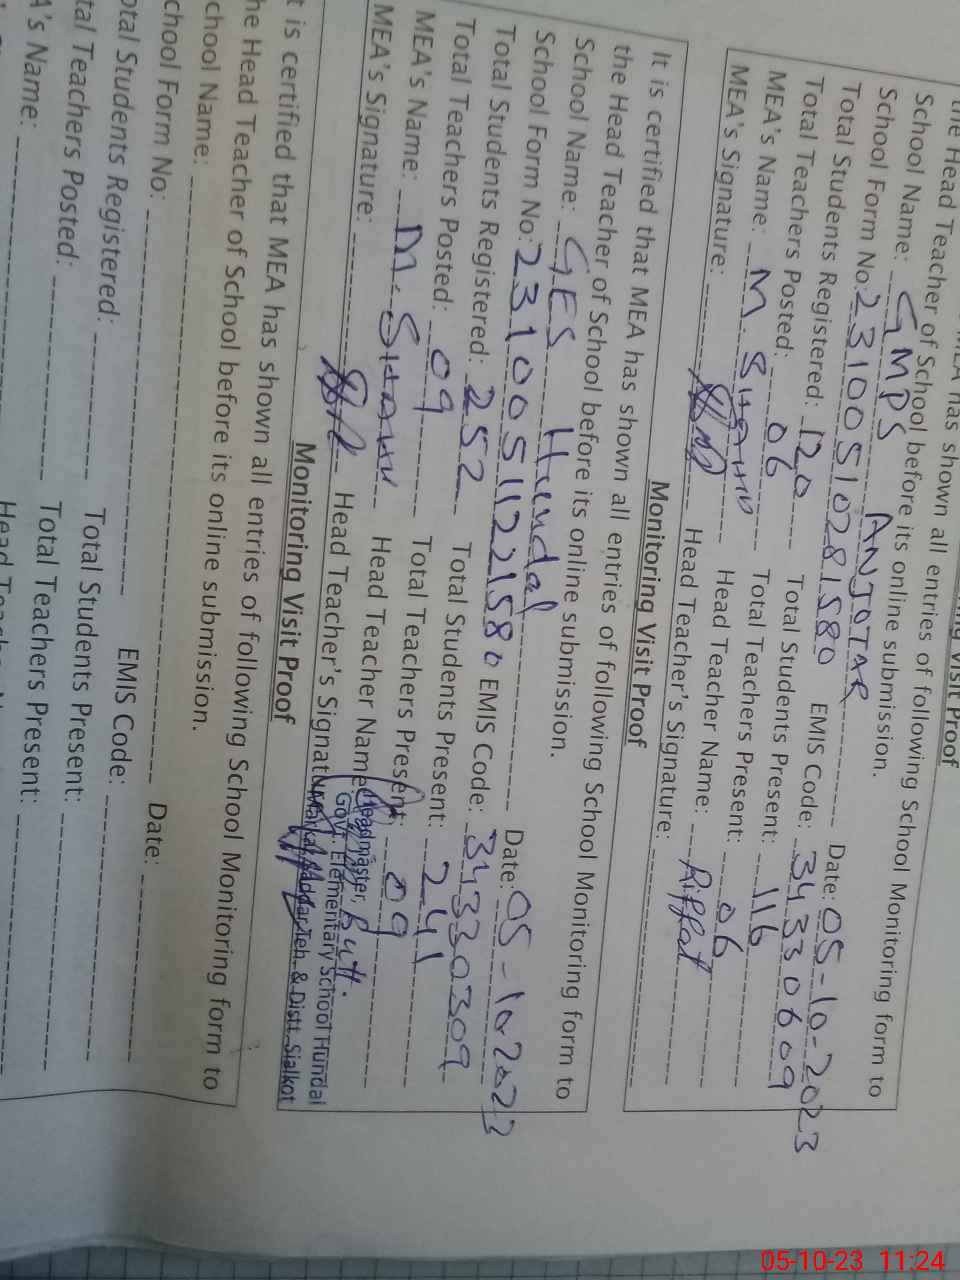 Monitoring Visit Proof
MEA has shown all entries of following School Monitoring form to
the Head Teacher of School before its online submission.
School Name: GMPS ANJOTAR
School Form No: 23100510281580 Date: 05-10-2023
Total Students Registered: 120 EMIS Code: 34330609
Total Teachers Posted: 06 Total Students Present: 116
MEA's Name: M. Total Teachers Present: 06
MEA's Signature: Head Teacher Name: Riffat
Head Teacher's Signature:
Monitoring Visit Proof
It is certified that MEA has shown all entries of following School Monitoring form to
the Head Teacher of School before its online submission.
School Name: GES Hundal
School Form No: 23100511221580 Date: 05-10-2023
Total Students Registered: 252 EMIS Code: 34330309
Total Teachers Posted: 09 Total Students Present: 241
MEA's Name: M. Total Teachers Present: 09
MEA's Signature: Head Teacher Name: Butt.
Head Teacher's Signat
Headmaster,
Govt. Elementary School Hundal
Teh. & Distt. Sialkot
Monitoring Visit Proof
t is certified that MEA has shown all entries of following School Monitoring form to
he Head Teacher of School before its online submission.
chool Name:
chool Form No: Date:
otal Students Registered: EMIS Code:
tal Teachers Posted: Total Students Present:
A's Name: Total Teachers Present:
Head
05-10-23 11:24